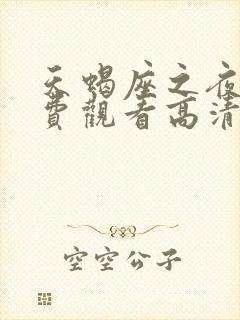 天蝎座之夜
費觀看高清
空空公子